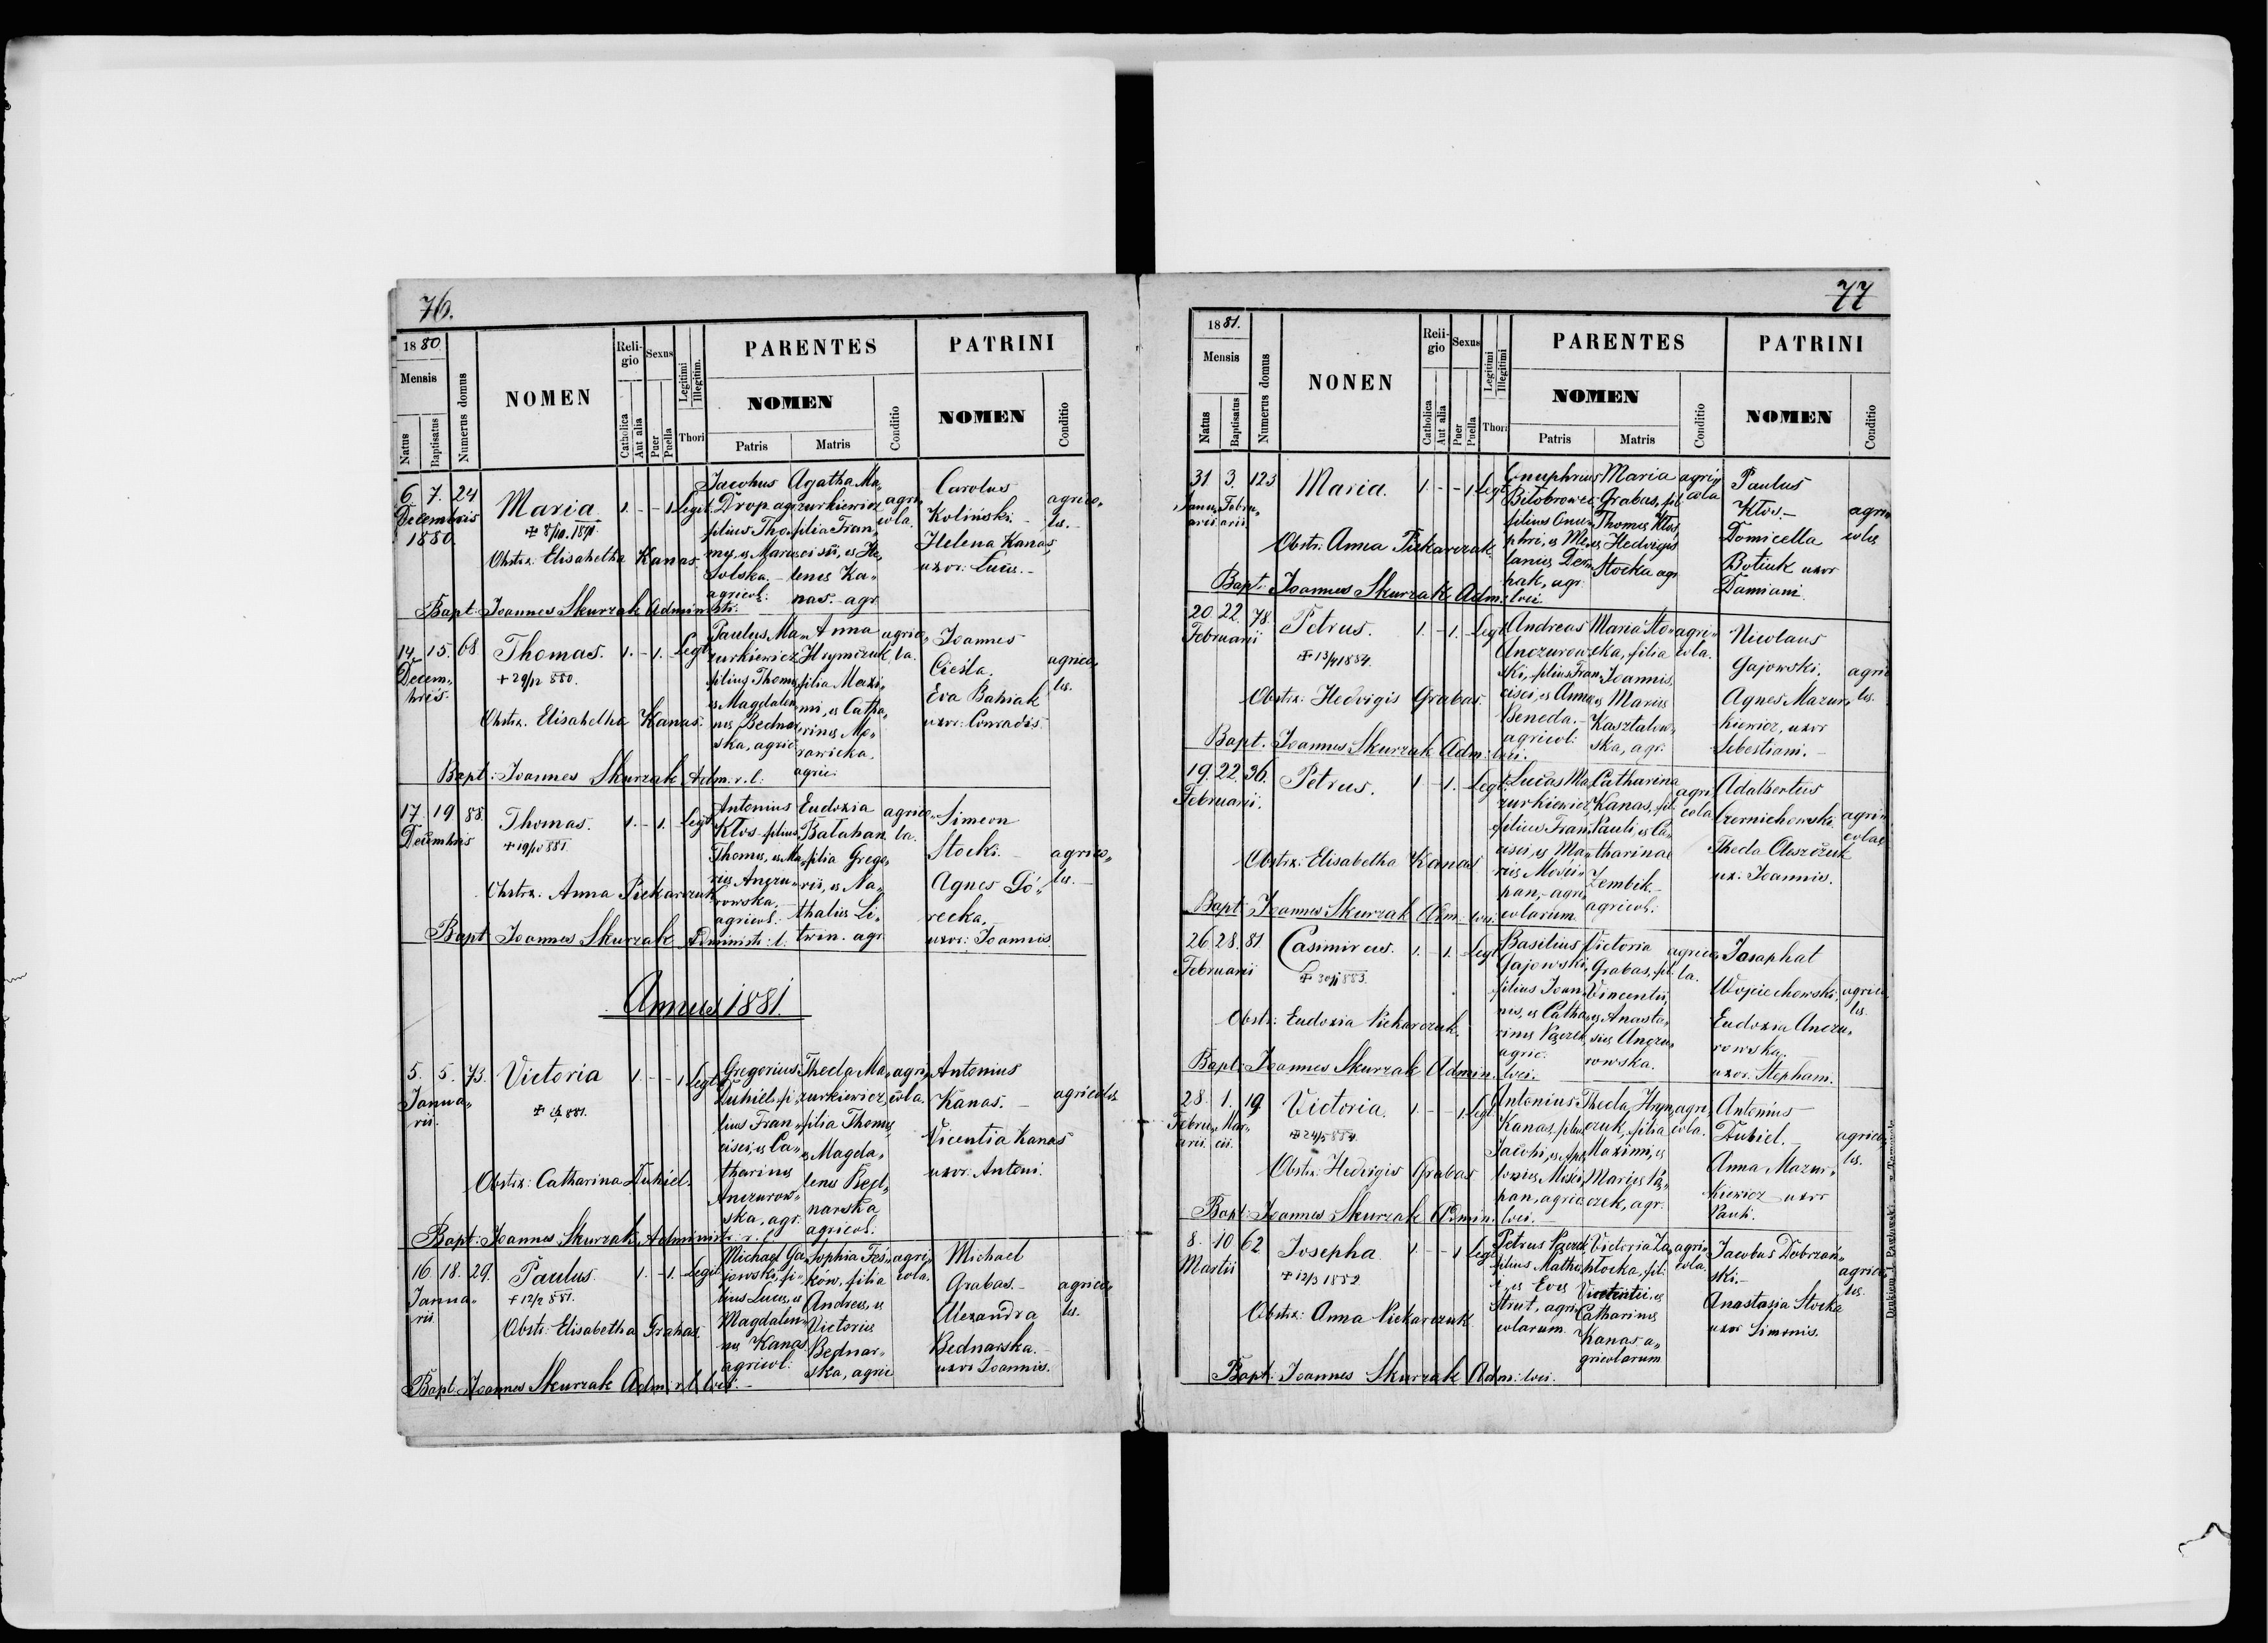 76.
1880
Mensis
Natus
Baptisatus
Numerus domus
NOMEN
Reli-
gio
Catholica
Aut alia
Sexus
Puer
Puella
Legitimi
Illegitim.
Thori
PARENTES
NOMEN
Patris
Matris
Conditio
PATRINI
NOMEN
Conditio
6. 7. 24
Decembris
1880.
Maria
1. - - 1. Legit.
Obstrx. Elisabetha Kanas.
Jacobus
Drop agr.
filius Tho-
mæ, et Mariæ
Solska, -
agricol:
Agatha Ma„
zurkiewicz
filia Fran„
cisii, et He„
lenæ Ka„
nas. - agr.
agri„
cola.
Carolus
Koliński. -
Helena Kanas,
uxor: Lucæ. -
agrico„
læ. -
Bapt: Joannes Skurzak Administr:
14. 15. 68.
Decem„
bris.
Thomas.
+ 29/12 880.
1. - 1. - Legt.
Obstrx. Elisabetha Kanas.
Paulus Ma„
zurkiewicz
filius Thomæ
et Magdale„
næ Bednar
ska, agric.
Anna
Hrymczuk,
filia Maxi„
mi, et Catha„
rinæ Mo„
rawicka,
agric.
agrico„
la.
Joannes
Cieśla.
Eva Babiak
uxor: Conradis.
agrico„
læ.
Bapt: Joannes Skurzak Adm. r. l.
17. 19 88.
Decembris
Thomas.
+ 19/10 881
1. - 1. - Legt.
Obstrx. Anna Piekarczuk
Antonius
Kłos - filius
Thomæ, et Ma„
riæ Anczu„
rowska, -
agricol:
Eudoxia
Bałaban
filia Grego„
rii, et Na„
thaliæ Li„
twin. agr.
agrico„
la.
Simeon
Stocki. -
Agnes Gó„
recka,
uxor: Joannis
agrico„
læ. -
Bapt Joannes Skurzak Administr: l.
Annus 1881.
5. 5. 73.
Janua„
rii.
Victoria
1. - - 1. Legt.
Obstrx: Catharina Dubiel.
Gregorius
Dubiel, fi„
lius Fran„
cisci, et Ca„
tharinæ
Anczurow„
ska, agr.
Thecla Ma„
zurkiewicz,
filia Thomæ
et Magda„
lenæ Bed„
narska
agricol:
agri„
cola.
Antonius
Kanas. -
Vicentia Kanas
uxor. Antoni.
agricolæ
Bapt: Joannes Skurzak Administr. r. l.
16. 18. 29.
Janua„
rii
Paulus.
+ 12/2 881.
1. - 1. - Legit.
Obstr: Elisabetha Grabas.
Michael Ga„
jowski, fi„
lius Lucæ, et
Magdalen„
næ Kanas
agricol:
Sophia Feś„
ków, filia
Andreæ, et
Victoriæ
Bednar„
ska, agric
agri„
cola.
Michael
Grabas. -
Alexandra
Bednarska.
uxor Joannis.
agrico„
læ.
Bapt. Joannes Skurzak Adm: r. l. loci. -
77
1881.
Mensis
Natus
Baptisatus
Numerus domus
NONEN
Reli-
gio
Catholica
Aut alia
Sexus
Puer
Puella
Legitimi
Illegitimi
Thori
PARENTES
NOMEN
Patris
Matris
Conditio
PATRINI
NOMEN
Conditio
31. 3. 123
Janu„ Febru„
arii arii
Maria.
1. - - 1. Legt.
Obstr: Anna Piekarczuk.
Onuphrius
Biłobrowec
filius Onu„
phri, et Me„
laniæ Der„
pak, agr.
Maria
Grabas, fil.
Thomæ Kłos,
et Hedvigis
Stocka agr
agri„
cola
Paulus
Kłos. -
Domicella
Botiuk uxor
Damiani.
agri„
colæ
Bapt: Joannes Skurzak Adm: loci.
20 22. 78.
Februarii
Petrus.
+ 13/4 1884.
1. - 1. - Legt.
Obstrx: Hedvigis Grabas.
Andreas
Anczurow„
ski, filius Fran„
cisci, et Annæ
Beneda. -
agricol:
Maria Sto„
cka, filia
Joannis,
et Mariæ
Kasztalow„
ska, agr:
agri„
cola.
Nicolaus
Gajowski.
Agnes Mazur„
kiewicz, uxor
Sebestiani. -
agrico
læ.
Bapt. Joannes Skurzak Adm: loci.
19. 22. 36.
Februarii.
Petrus.
1 - 1. - Legt.
Obstrx: Elisabetha Kanas
Lucas Ma„
zurkiewicz,
filius Fran„
cisci, et Ma„
riæ Mości„
pan, - agri„
colarum.
Catharina
Kanas, fil.
Pauli, et Ca„
tharinae
Zembik. -
agricol:
agri
cola
Adalbertus
Czernichowski.
Thecla Oleszczuk
ux: Joannis.
agri„
colæ
Bapt: Joannes Skurzak Adm: loci.
26. 28. 81
Februarii
Casimirus.
1. - 1. - Legt.
Obstr: Eudoxia Piekarczuk.
Basilius
Gajowski,
filius Joan„
nis, et Catha„
rinæ Pączek,
agric:
Victoria
Grabas, fil.
Vincentii,
et Anasta„
siæ Anczu„
rowska.
agrico„
la.
Josaphat
Wojciechowski,
Eudoxia Anczu„
rowska.
uxor. Stephani.
agrico„
læ.
Bapt: Joannes Skurzak Admin. loci.
28. 1. 19.
Febru„ Mar„
arii. tii.
Victoria.
+ 24/5 884.
1. - - 1. Legt.
Obstrx: Hedvigis Grabas
Antonius
Kanas, filius
Jacobi, et Apo„
loniæ Mości„
pan, agric
Thecla Hrym„
czuk, filia
Maximi, et
Mariæ Pą„
czek, agr:
agri„
cola.
Antonius
Dubiel. -
Anna Mazur„
kiewicz uxor
Pauli.
agrico„
læ.
Bapt: Joannes Skurzak Admin. loci. -
8. 10 62
Martii
Josepha.
+ 12/3 1882
1. - - 1 Legt.
Obstrx: Anna Piekarczuk
Petrus Pączek
filius Mathæ„
i, et Evæ
Strut, agri„
colarum.
Victoria Za„
płocka, fil:
Vicentii, et
Catharinæ
Kanas a„
gricolarum
agri„
cola.
Jacobus Dobrzań„
ski. -
Anastazia Stocka
uxor Simonis.
agrico„
læ.
Bapt: Joannes Skurzak Adm: loci.
Drukiem J. Pawłowski w Tarnopolu